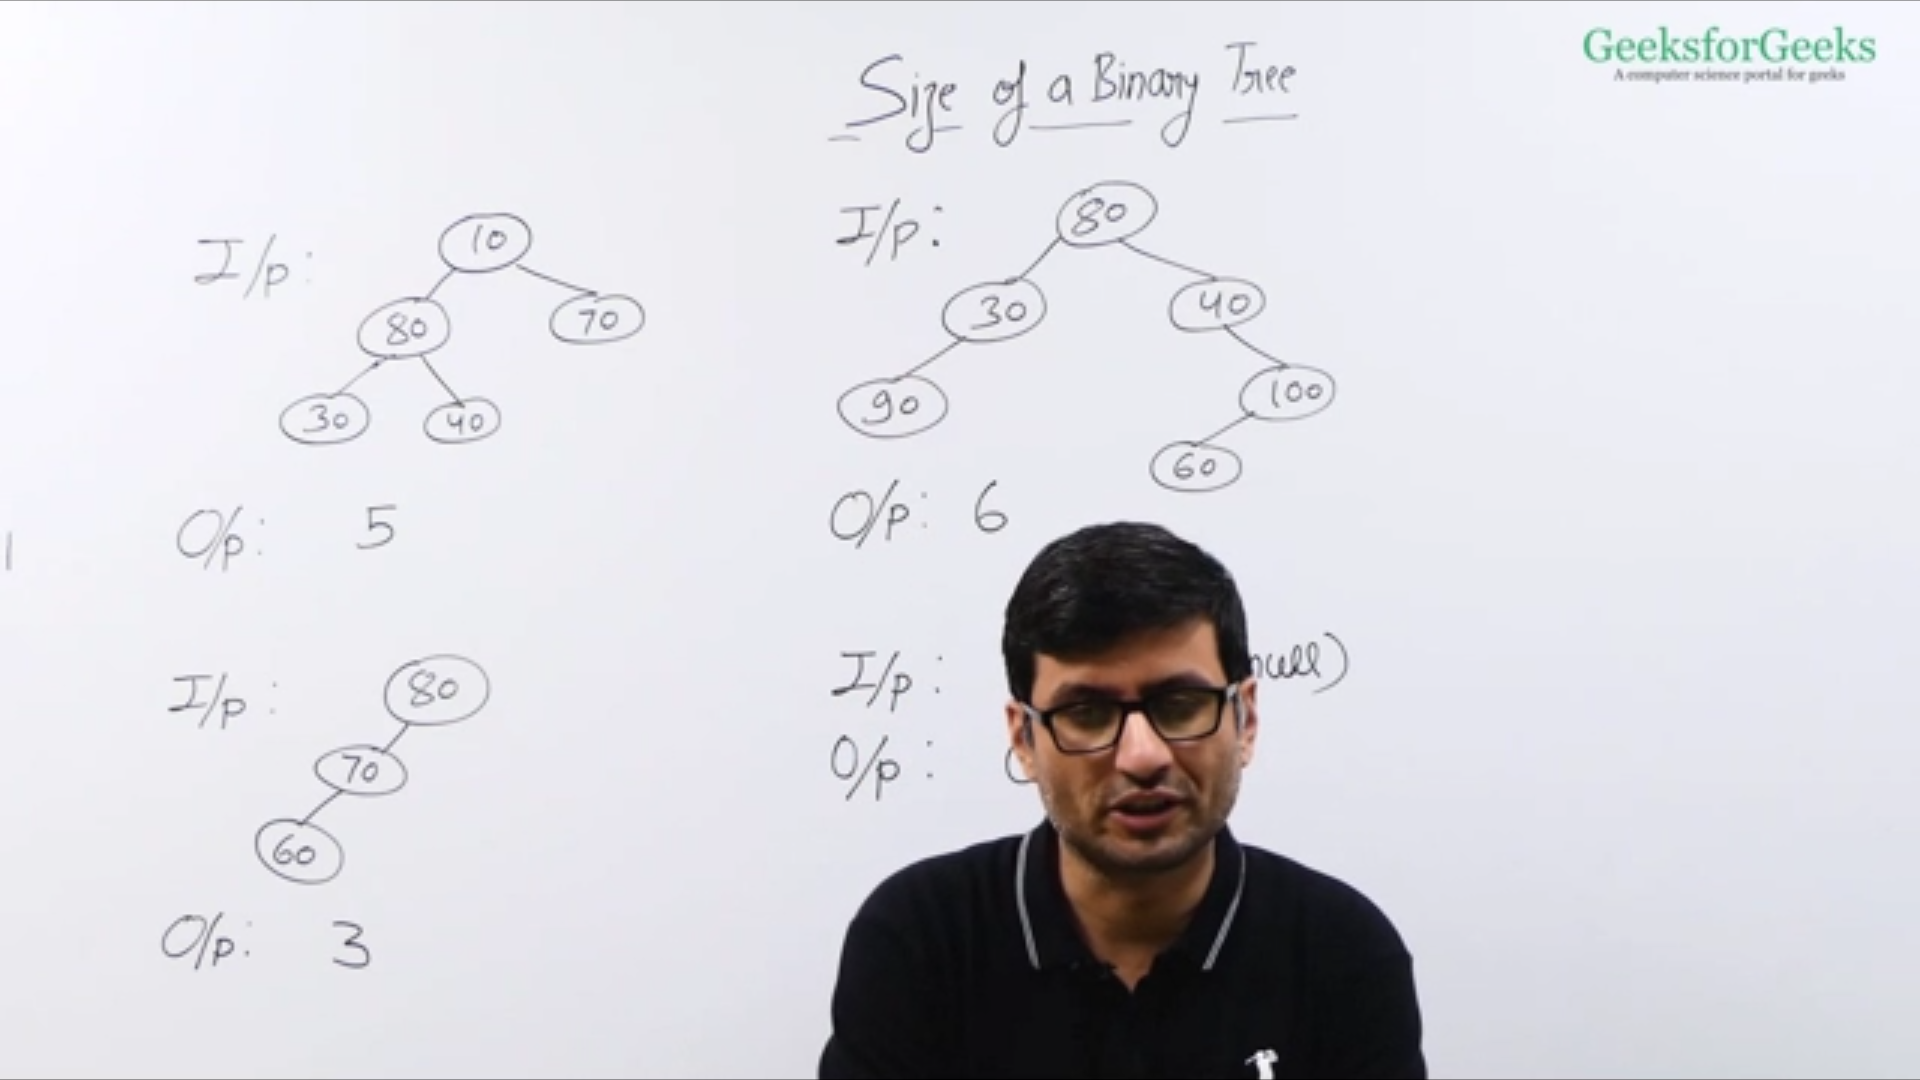 GeeksforGeeks
A computer science portal for geeks
Size of a Binary Tree
I/p:
10
80
70
30
40
O/p: 5
I/p:
80
30
40
90
100
60
O/p: 6
I/p:
80
70
60
O/p: 3
I/p: null)
O/p: